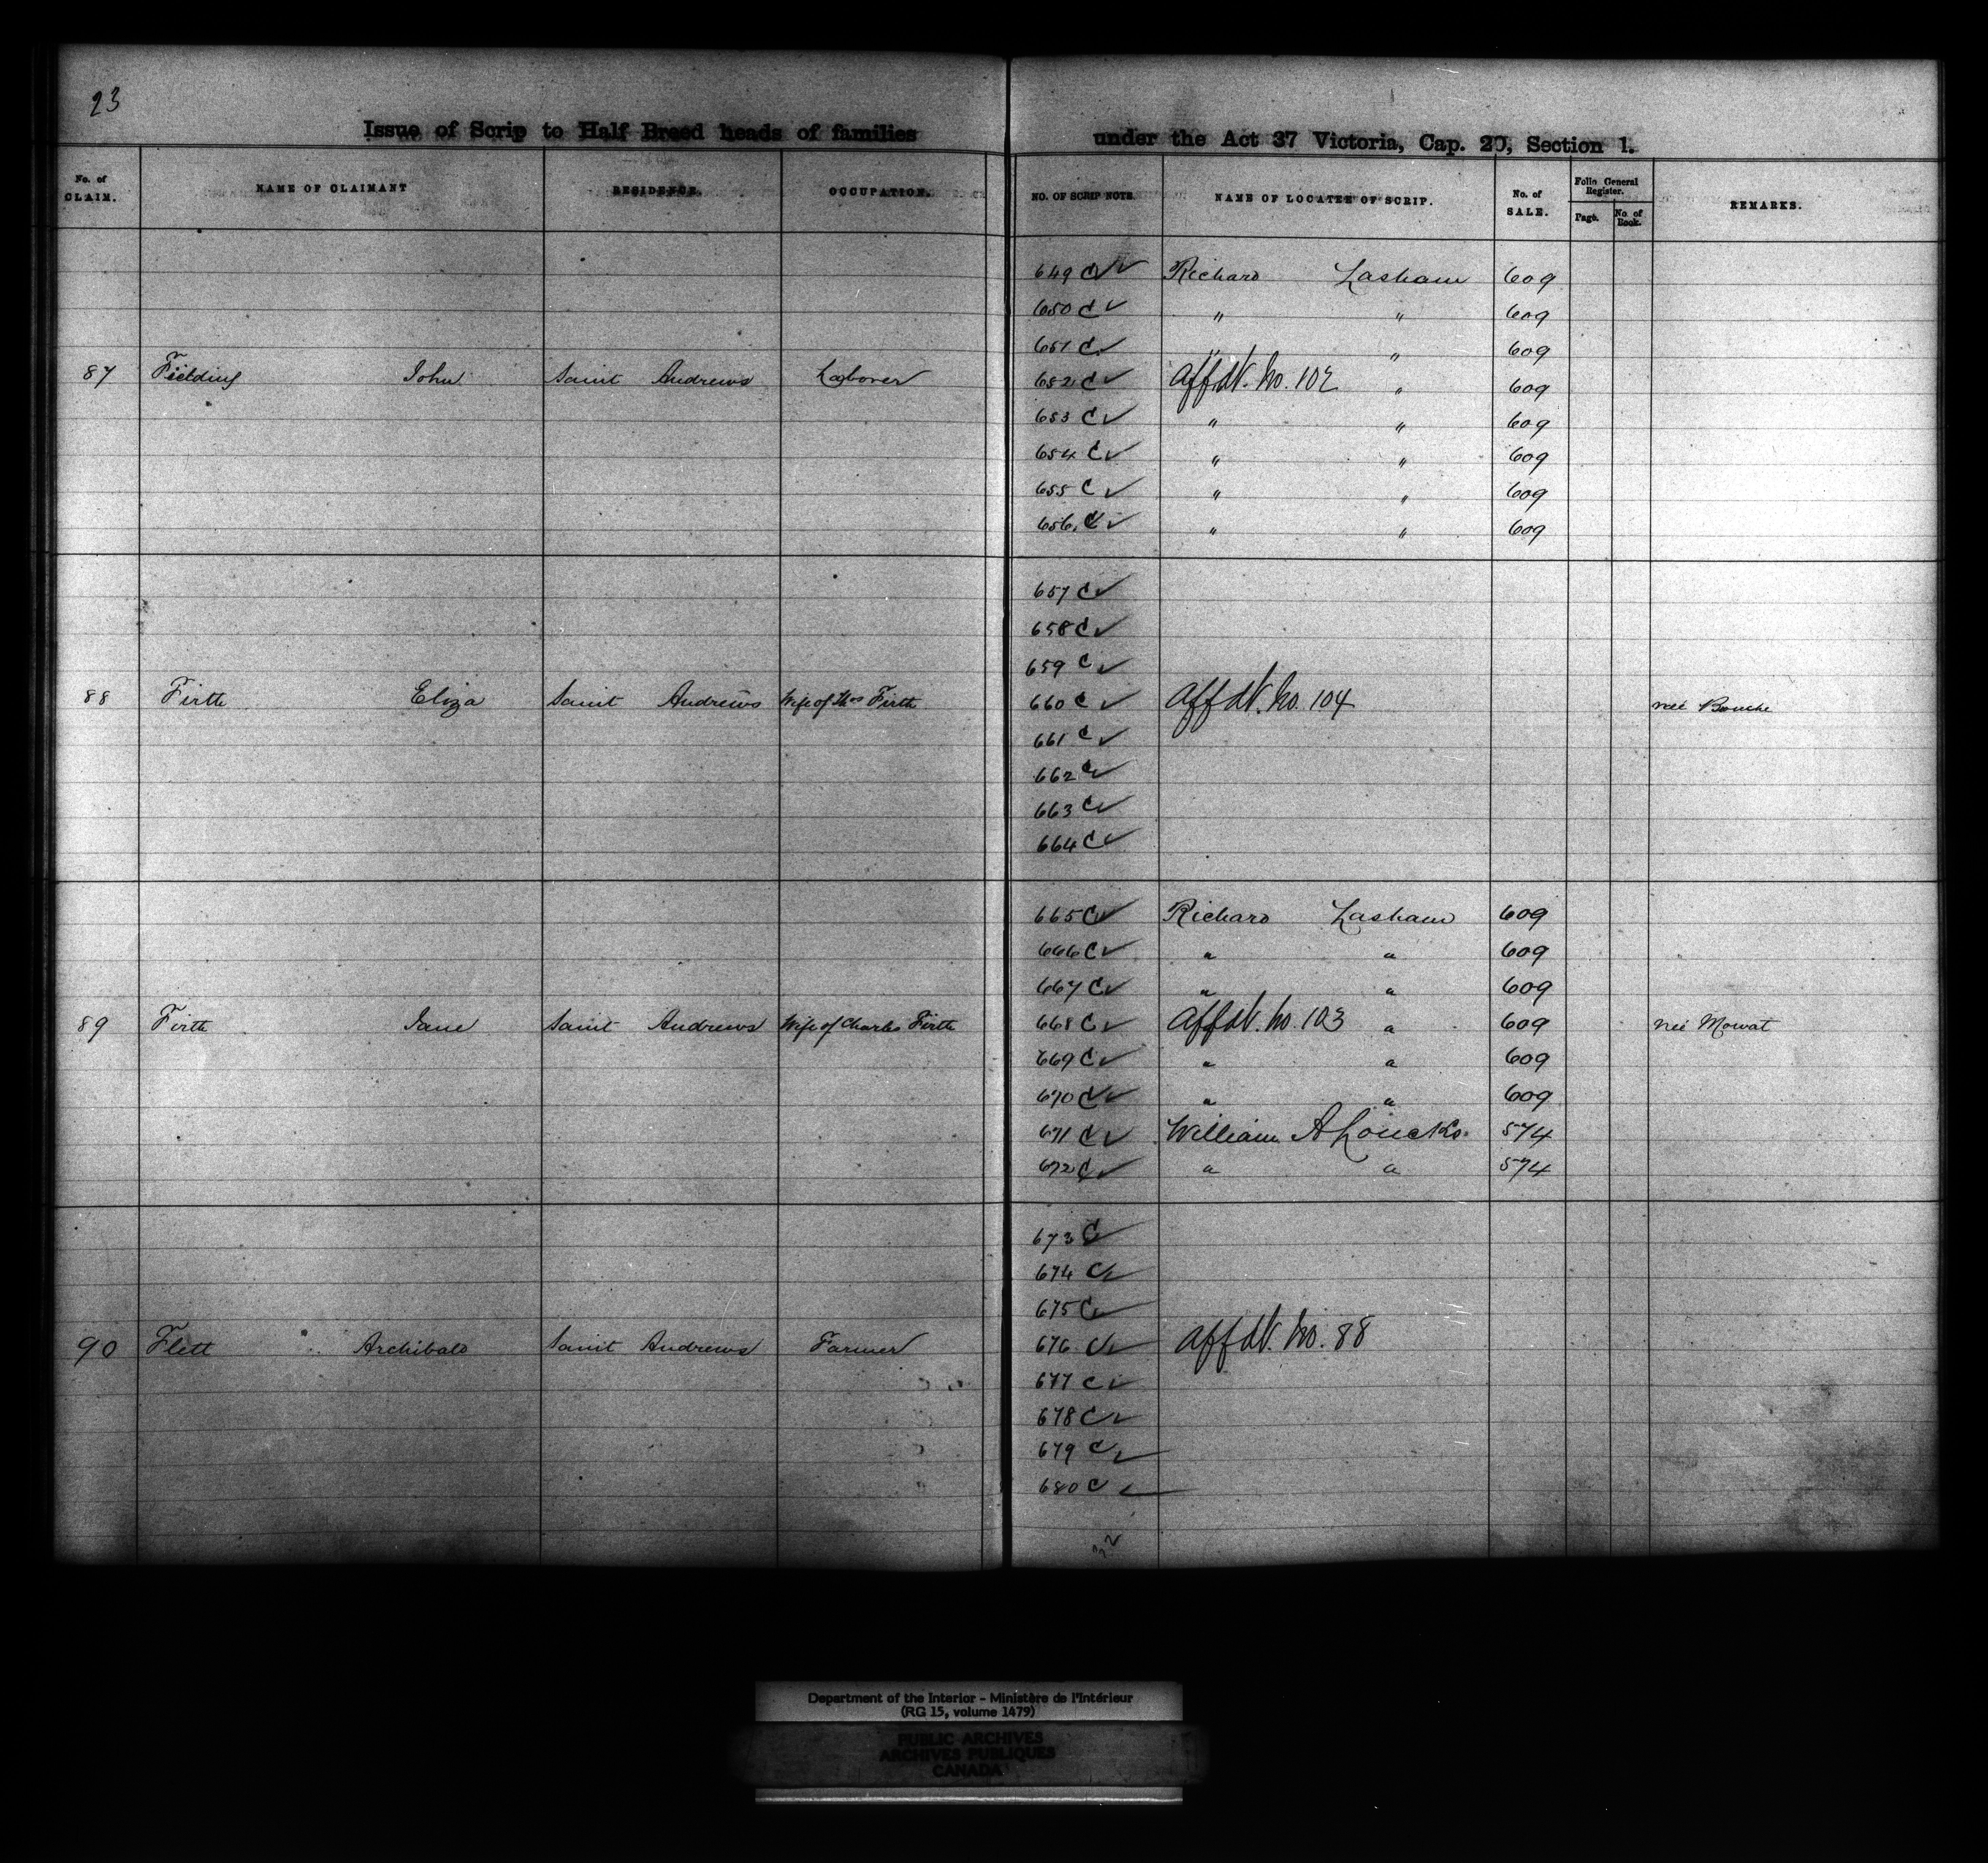 23
Issue of Scrip to Half Breed heads of families under the Act 37 Victoria, Cap. 20, Section 1.
No. of CLAIM. NAME OF CLAIMANT RESIDENCE. OCCUPATION. NO. OF SCRIP NOTE. NAME OF LOCATEE OF SCRIP. No. of SALE. Folio General Register. Page. No. of Book. REMARKS.
649 C ✓ Richard Lasham 609
650 C ✓ " " 609
651 C ✓ " " 609
87 Fielding John Saint Andrews Laborer 652 C ✓ Affdvt. No. 102 " 609
653 C ✓ " " 609
654 C ✓ " " 609
655 C ✓ " " 609
656 C ✓ " " 609
657 C ✓
658 C ✓
659 C ✓
88 Firth Eliza Saint Andrews Wife of Thos Firth 660 C ✓ Affdvt. No. 104 neé Bouche
661 C ✓
662 C ✓
663 C ✓
664 C ✓
665 C ✓ Richard Lasham 609
666 C ✓ " " 609
667 C ✓ " " 609
89 Firth Jane Saint Andrews Wife of Charles Firth 668 C ✓ Affdvt. No. 103 " 609 neé Mowat
669 C ✓ " " 609
670 C ✓ " " 609
671 C ✓ William A Loucks 574
672 C ✓ " " 574
673 C ✓
674 C ✓
675 C ✓
90 Flett Archibald Saint Andrews Farmer 676 C ✓ Affdvt. No. 88
677 C ✓
678 C ✓
679 C ✓
680 C ✓
Department of the Interior - Ministère de l'Intérieur
(RG 15, volume 1479)
PUBLIC ARCHIVES
ARCHIVES PUBLIQUES
CANADA